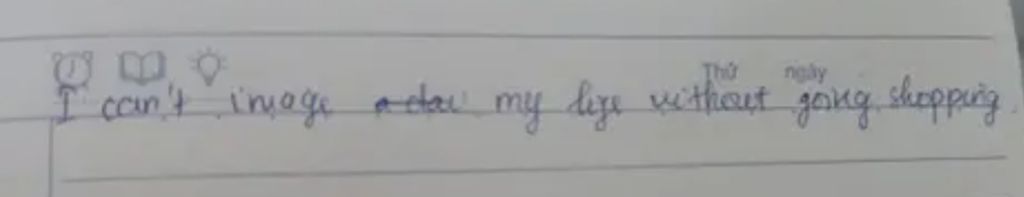 Thứ ngày
I can't image my life without going shopping.